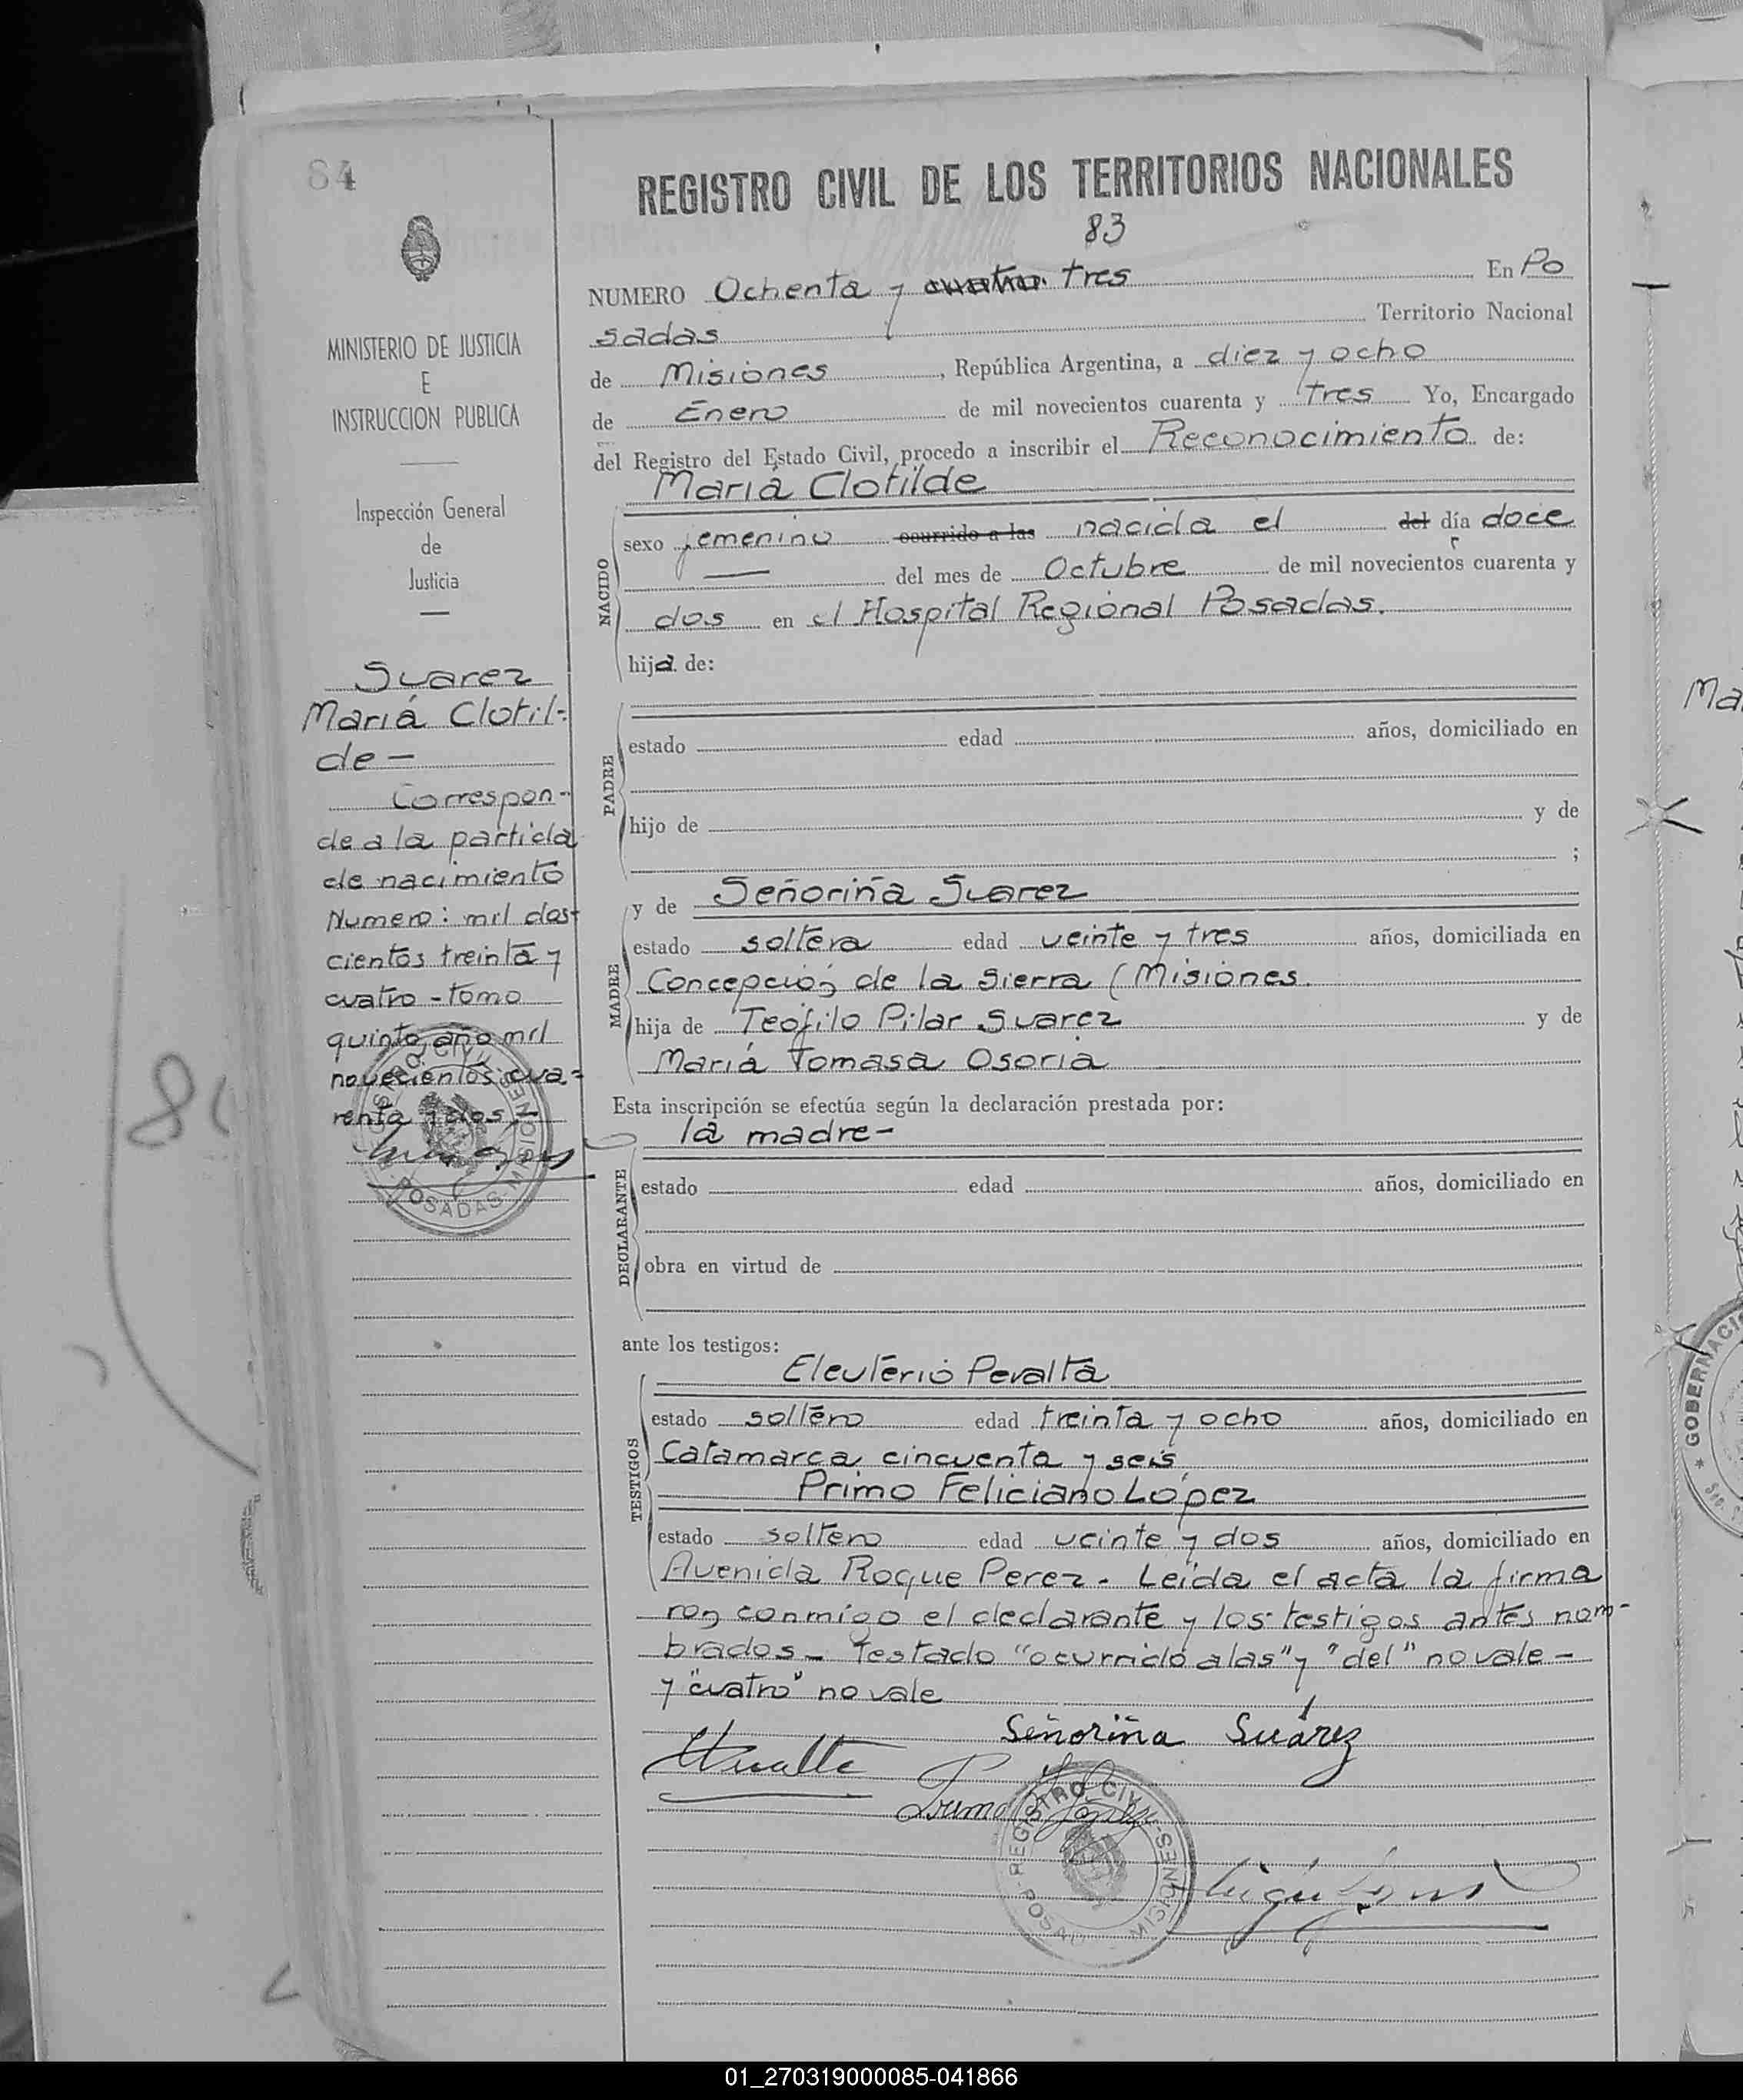 84
REGISTRO CIVIL DE LOS TERRITORIOS NACIONALES
83
NUMERO Ochenta y cuatro. tres En Po
sadas Territorio Nacional
de Misiones, República Argentina, a diez y ocho
de Enero de mil novecientos cuarenta y tres Yo, Encargado
del Registro del Estado Civil, procedo a inscribir el Reconocimiento de:
Mariá Clotilde
NACIDO
sexo femenino ocurrido a las nacida el del día doce
— del mes de Octubre de mil novecientos cuarenta y
dos en el Hospital Regional Posadas.
hija de:
PADRE
estado edad años, domiciliado en
hijo de y de
;
MADRE
y de Señoriña Suarez
estado soltera edad veinte y tres años, domiciliada en
Concepción de la Sierra (Misiones.
hija de Teofilo Pilar Suarez y de
Mariá Tomasa Osoria
Esta inscripción se efectúa según la declaración prestada por:
la madre-
DECLARANTE
estado edad años, domiciliado en
obra en virtud de
ante los testigos:
TESTIGOS
Eleuterio Peralta
estado soltero edad treinta y ocho años, domiciliado en
Catamarca cincuenta y seis
Primo Feliciano Lopez
estado soltero edad veinte y dos años, domiciliado en
Avenida Roque Perez. Leida el acta la firma
ron conmigo el declarante y los testigos antes nom-
brados- Testado "ocurrido alas" y "del" no vale -
y "cuatro" no vale
Señoriña Suárez
REGISTRO CIVIL
POSADAS MISIONES
MINISTERIO DE JUSTICIA
E
INSTRUCCION PUBLICA
Inspección General
de
Justicia
Suarez
Mariá Clotil-
de -
Correspon-
de a la partida
de nacimiento
Numero: mil dos-
cientos treinta y
cuatro - tomo
quinto año mil
novecientos cua-
renta y dos. -
POSADAS MISIONES
Ma
GOBERNACI
01_270319000085-041866